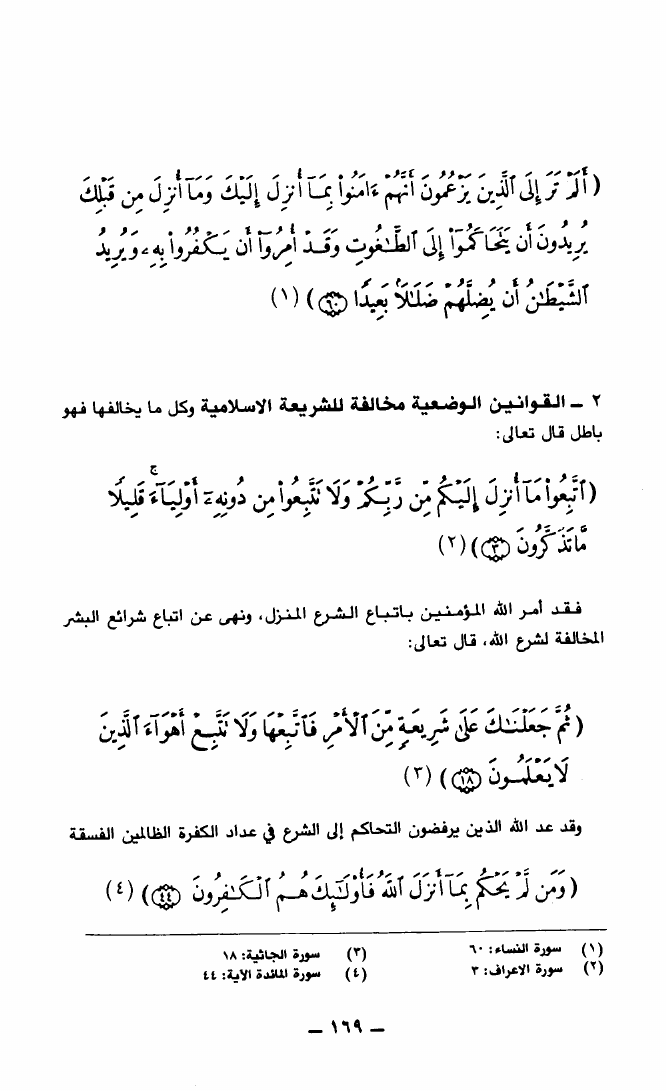 (أَلَمْ تَرَ إِلَى ٱلَّذِينَ يَزْعُمُونَ أَنَّهُمْ ءَامَنُوا۟ بِمَآ أُنزِلَ إِلَيْكَ وَمَآ أُنزِلَ مِن قَبْلِكَ
يُرِيدُونَ أَن يَتَحَاكَمُوٓا۟ إِلَى ٱلطَّٰغُوتِ وَقَدْ أُمِرُوٓا۟ أَن يَكْفُرُوا۟ بِهِۦ وَيُرِيدُ
ٱلشَّيْطَٰنُ أَن يُضِلَّهُمْ ضَلَٰلًۢا بَعِيدًا ۝٦٠) (١)
٢ ـ القوانين الوضعية مخالفة للشريعة الاسلامية وكل ما يخالفها فهو
باطل قال تعالى:
(ٱتَّبِعُوا۟ مَآ أُنزِلَ إِلَيْكُم مِّن رَّبِّكُمْ وَلَا تَتَّبِعُوا۟ مِن دُونِهِۦٓ أَوْلِيَآءَ ۗ قَلِيلًا
مَّا تَذَكَّرُونَ ۝٣) (٢)
فقد أمر الله المؤمنين باتباع الشرع المنزل، ونهى عن اتباع شرائع البشر
المخالفة لشرع الله، قال تعالى:
(ثُمَّ جَعَلْنَٰكَ عَلَىٰ شَرِيعَةٍ مِّنَ ٱلْأَمْرِ فَٱتَّبِعْهَا وَلَا تَتَّبِعْ أَهْوَآءَ ٱلَّذِينَ
لَا يَعْلَمُونَ ۝١٨) (٣)
وقد عد الله الذين يرفضون التحاكم إلى الشرع في عداد الكفرة الظالمين الفسقة
(وَمَن لَّمْ يَحْكُم بِمَآ أَنزَلَ ٱللَّهُ فَأُو۟لَٰٓئِكَ هُمُ ٱلْكَٰفِرُونَ ۝٤٤) (٤)
(١) سورة النساء: ٦٠ (٣) سورة الجاثية: ١٨
(٢) سورة الاعراف: ٣ (٤) سورة المائدة الآية: ٤٤
ـ ١٦٩ ـ